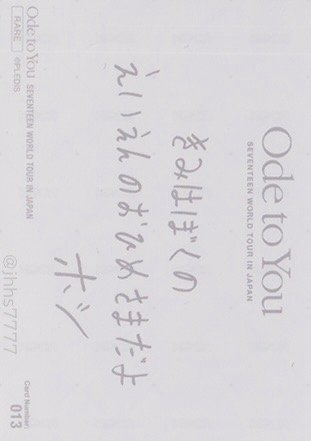 Ode to You
SEVENTEEN WORLD TOUR IN JAPAN
きみはぼくの
えいえんのおひめさまだよ
ホシ
Ode to You SEVENTEEN WORLD TOUR IN JAPAN
RARE ©PLEDIS
@ihhs7777
Card Number
013